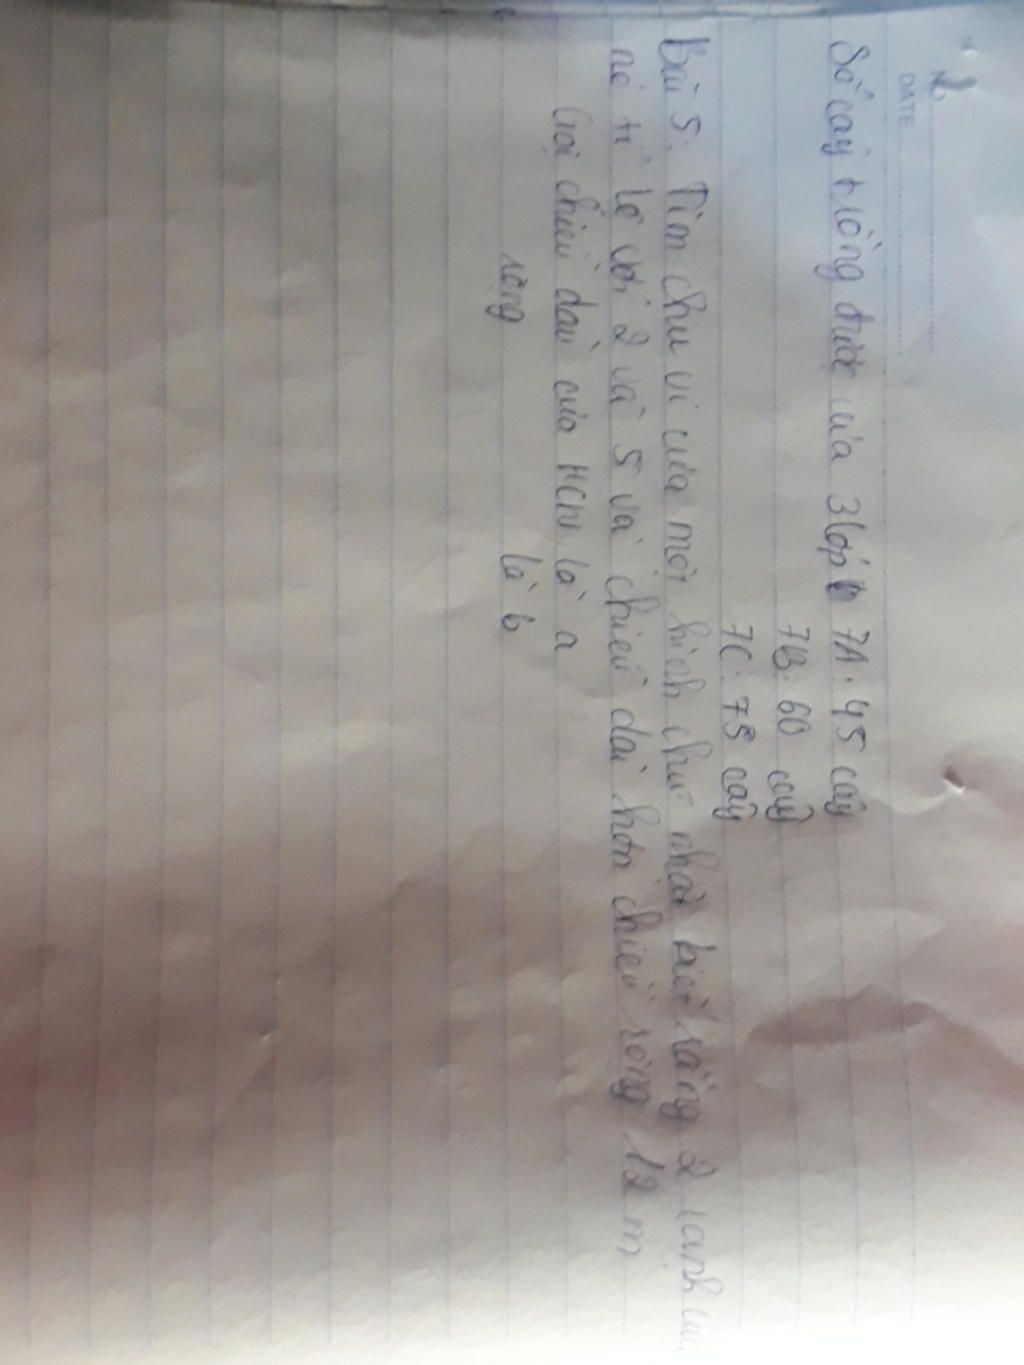 No.
DATE
Số cây trồng được của 3 lớp 7A: 45 cây
7B: 60 cây
7C: 75 cây
Bài 5: Tìm chu vi của một hình chữ nhật biết rằng 2 cạnh của
nó tỉ lệ với 2 và 5 và chiều dài hơn chiều rộng 12 m
Gọi chiều dài của HCN là a
rộng là b